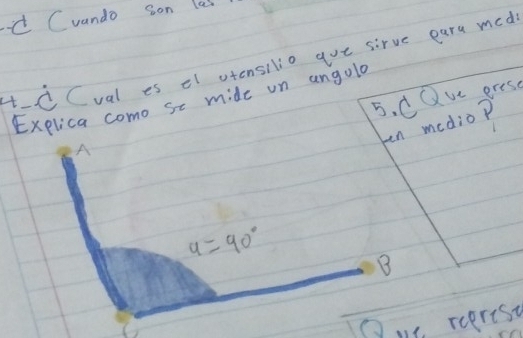 -¿ Cuando son las
4-¿ Cual es el utensilio que sirve para medi
Explica como se mide un angulo
5.¿ Que prese
en medio?
A
a=90°
B
C
Que represe